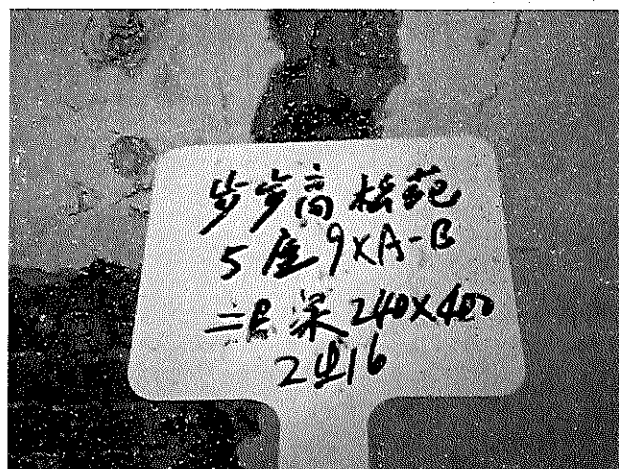 步步高 松苑
5座 9XA-B
二层梁 240X400
2业16